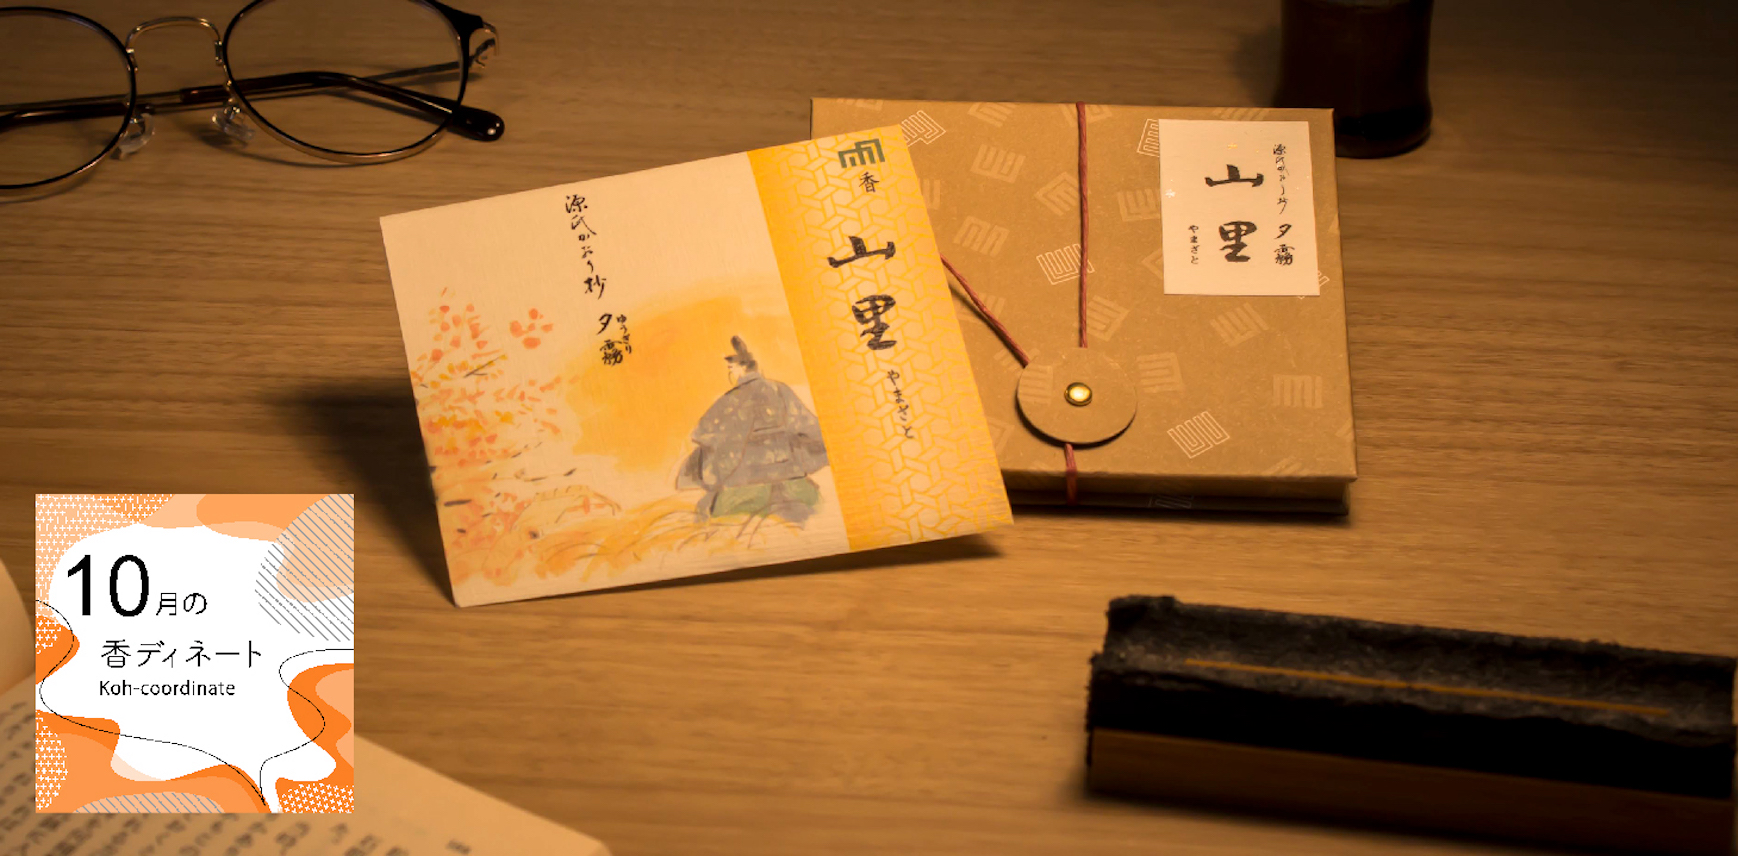 源氏かおり抄
夕霧
ゆうぎり
香
山里
やまざと
源氏かおり抄 夕霧
山里
やまざと
10月の
香ディネート
Koh-coordinate